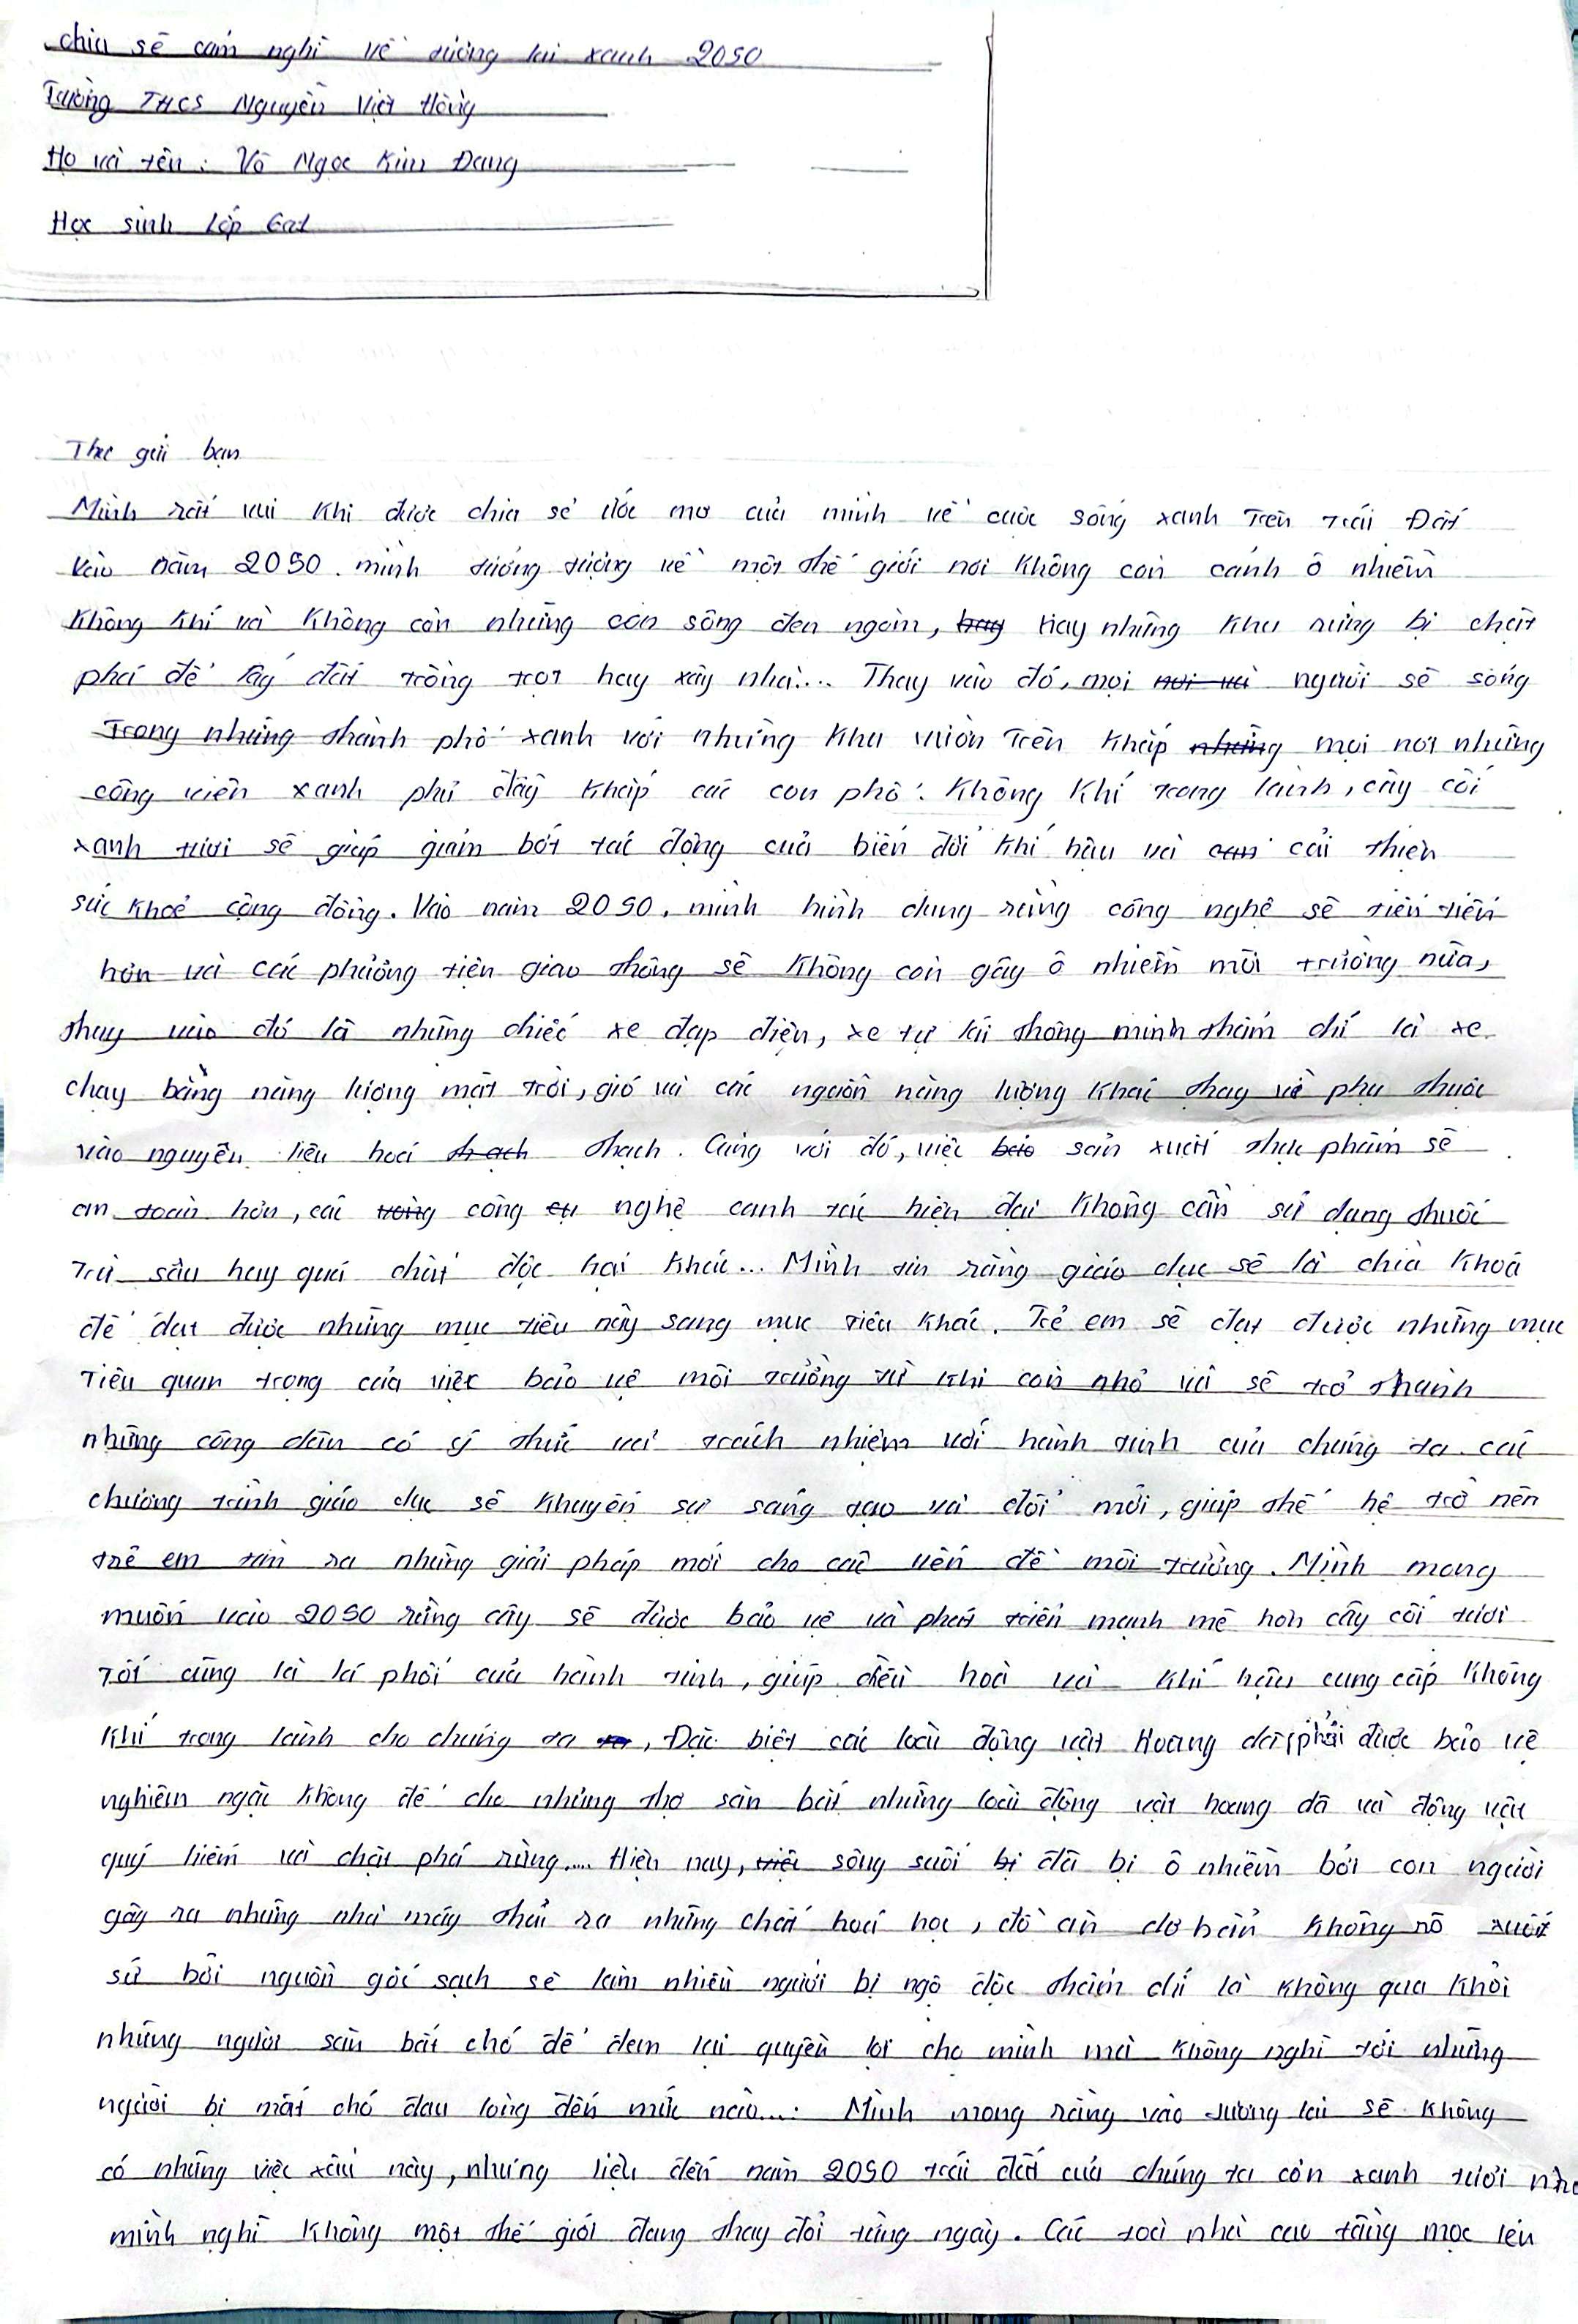 chia sẽ cảm nghĩ về tương lai xanh 2050
Trường THCS Nguyễn Việt Hồng
Họ và tên : Võ Ngọc Kim Đang
Học sinh lớp 6a1
Thư gửi bạn
Mình rất vui khi được chia sẻ ước mơ của mình về cuộc sống xanh trên trái Đất
vào năm 2050. mình tưởng tượng về một thế giới nơi không còn cảnh ô nhiễm
không khí và không còn những con sông đen ngòm, hay những khu rừng bị chặt
phá để lấy đất trồng trọt hay xây nhà... Thay vào đó, mọi người sẽ sống
Trong những thành phố xanh với những khu vườn trên khắp mọi nơi những
công viên xanh phủ đầy khắp các con phố. Không khí trong lành, cây cối
xanh tươi sẽ giúp giảm bớt tác động của biến đổi khí hậu và cải thiện
sức khoẻ cộng đồng. Vào năm 2050, mình hình dung rằng công nghệ sẽ tiên tiến
hơn và các phương tiện giao thông sẽ không còn gây ô nhiễm môi trường nữa,
thay vào đó là những chiếc xe đạp điện, xe tự lái thông minh thậm chí là xe
chạy bằng năng lượng mặt trời, gió và các nguồn năng lượng khác thay vì phụ thuộc
vào nguyên liệu hoá thạch. Cùng với đó, việc sản xuất thực phẩm sẽ
an toàn hơn, các công nghệ canh tác hiện đại không cần sử dụng thuốc
trừ sâu hay quá chất độc hại khác... Mình tin rằng giáo dục sẽ là chìa khoá
để đạt được những mục tiêu này sang mục tiêu khác. Trẻ em sẽ đạt được những mục
tiêu quan trọng của việc bảo vệ môi trường từ khi còn nhỏ và sẽ trở thành
những công dân có ý thức và trách nhiệm với hành tinh của chúng ta các
chương trình giáo dục sẽ khuyến sự sáng tạo và đổi mới, giúp thế hệ trở nên
trẻ em tìm ra những giải pháp mới cho các vấn đề môi trường. Mình mong
muốn vào 2050 rừng cây sẽ được bảo vệ và phát triển mạnh mẽ hơn cây cối tươi
tốt cũng là lá phổi của hành tinh, giúp điều hoà và khí hậu cung cấp không
khí trong lành cho chúng ta, Đặc biệt các loài động vật hoang dã phải được bảo vệ
nghiêm ngặc không để cho những thợ săn bắt những loài động vật hoang dã và động vật
quý hiếm và chặt phá rừng.... Hiện nay, sông suối đã bị ô nhiễm bởi con người
gây ra những nhà máy thải ra những chất hoá học, đồ ăn dơ bẩn không rõ xuất
sứ bởi nguồn gốc sạch sẽ làm nhiều người bị ngộ độc thậm chí là không qua khỏi
những người săn bắt chó để đem lại quyền lợi cho mình mà không nghĩ tới những
người bị mất chó đau lòng đến mức nào.... Mình mong rằng vào tương lai sẽ không
có những việc xấu này, nhưng liệu đến năm 2050 trái đất của chúng ta còn xanh tươi như
mình nghĩ không một thế giới đang thay đổi từng ngày. Các toà nhà cao tầng mọc lên